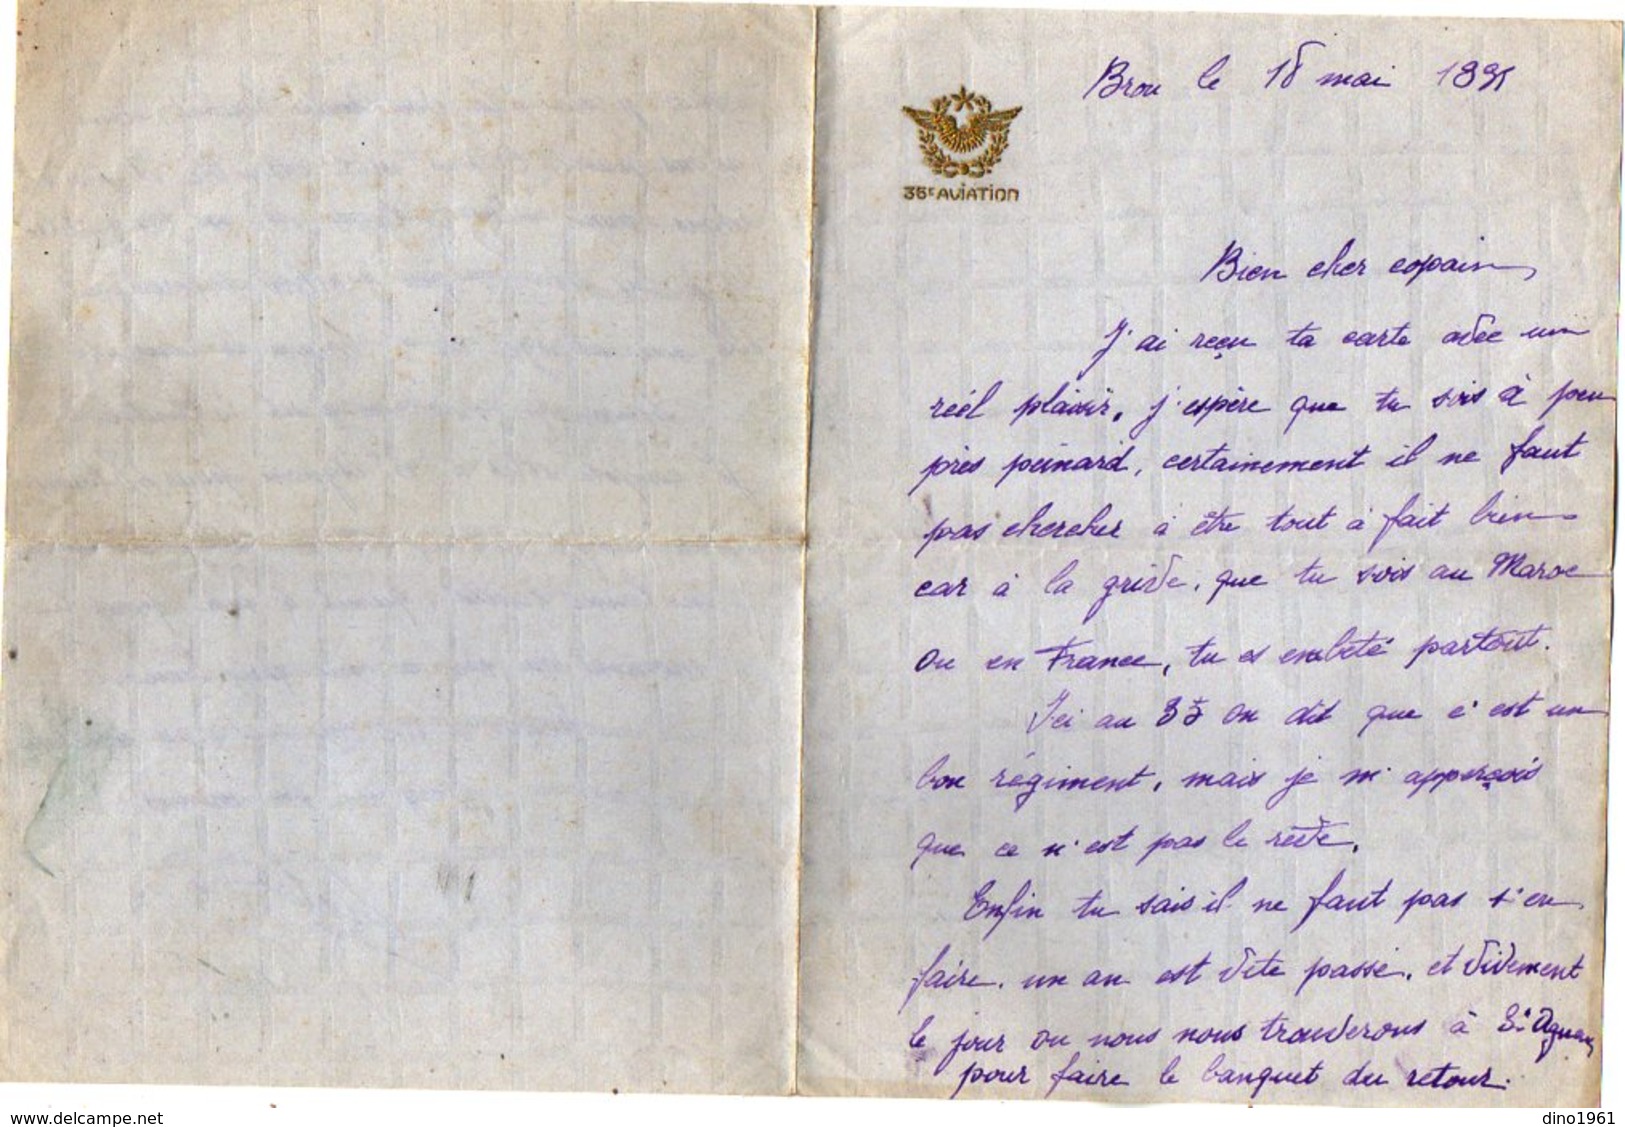 Bron le 18 mai 1931
35E AVIATION
Bien cher copain,
J'ai reçu ta carte avec un
réel plaisir, j'espère que tu sois à peu
près peinard, certainement il ne faut
pas chercher à être tout à fait bien
car à la grive, que tu sois au Maroc
ou en France, tu es embêté partout.
Ici au 35 on dit que c'est un
bon régiment, mais je m'apperçois
que ce n'est pas le rêve.
Enfin tu sais il ne faut pas s'en
faire. un an est vite passé, et vivement
le jour ou nous nous trouverons à St Agnan
pour faire le banquet du retour.
www.delcampe.net
dino1961